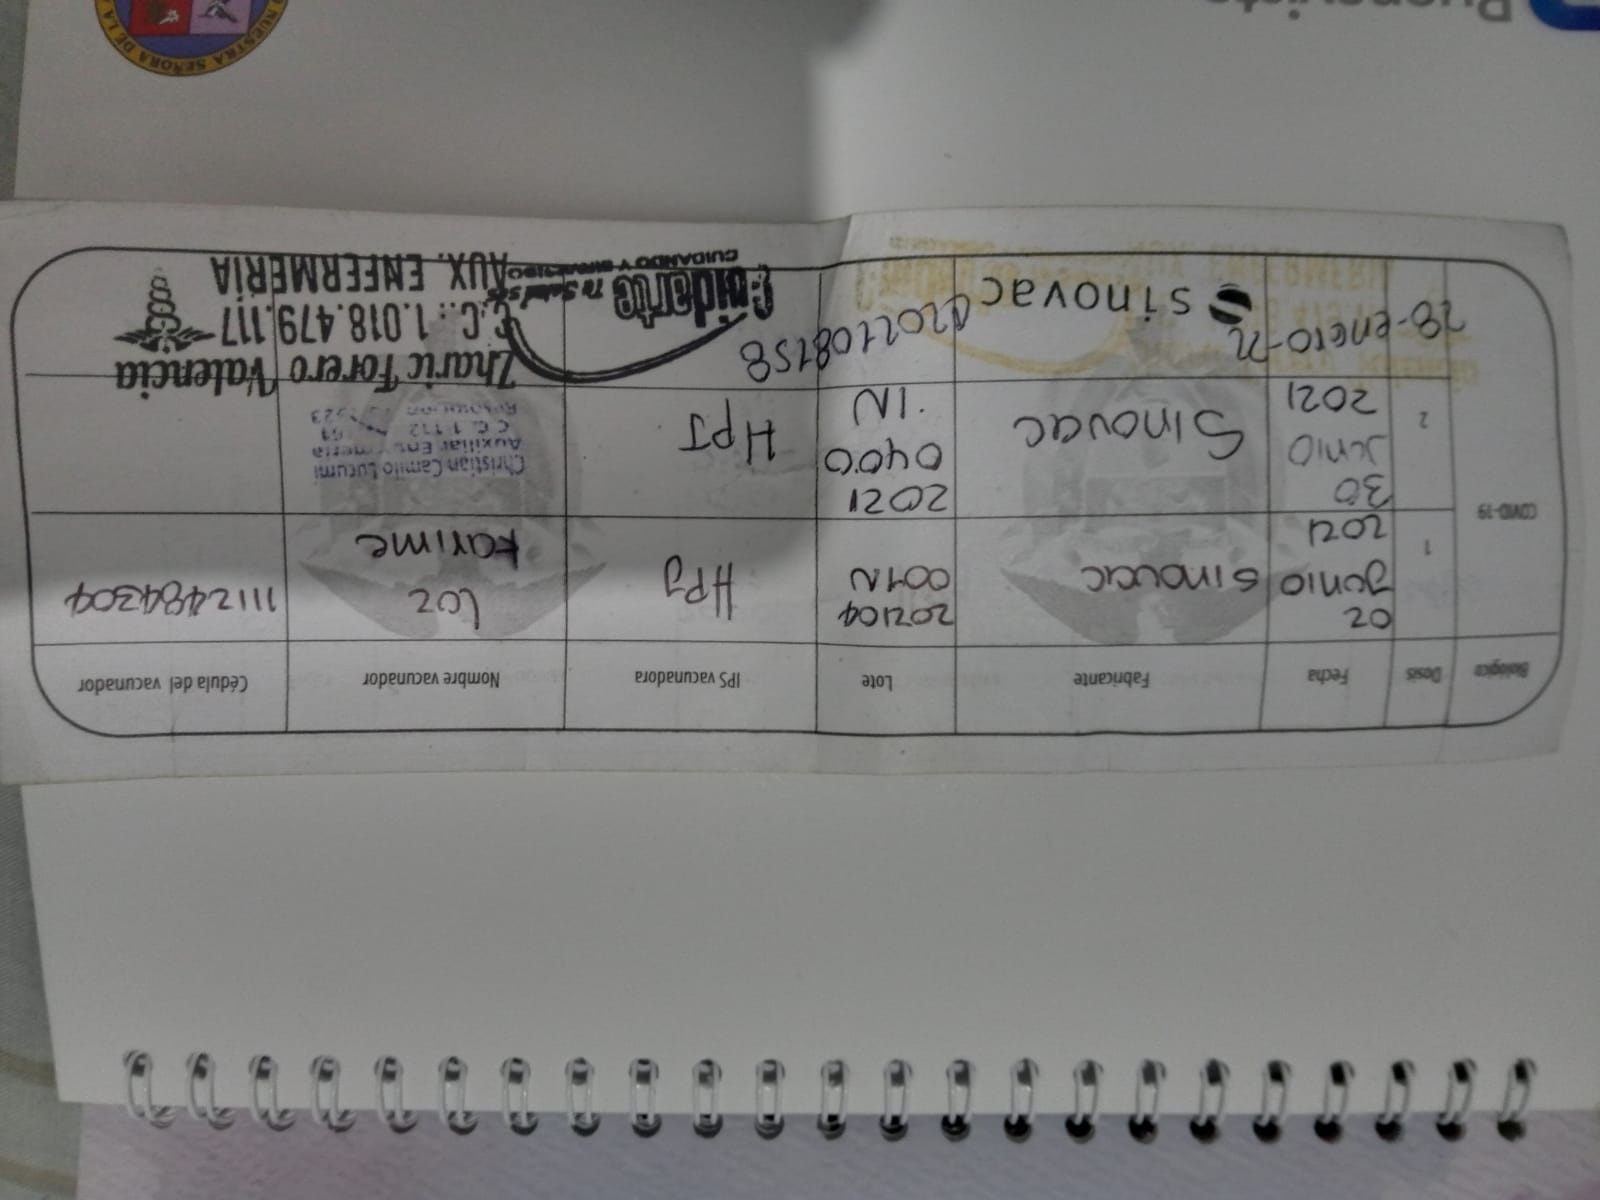 Biológico Dosis Fecha Fabricante Lote IPS vacunadora Nombre vacunador Cédula del vacunador
COVID-19
1
02
Junio
2021
Sinovac
202104
001N
HPJ
Luz
Karime
1112484304
2
30
Junio
2021
Sinovac
2021
0400
1N
HPJ
Christian Camilo Lucumi
Auxiliar Enfermería
28-enero-22
Sinovac
Cuidarte
Tu Salud
CUIDANDO Y
Zharic Forero Valencia
C.C.: 1.018.479.117
AUX. ENFERMERÍA
NUESTRA SEÑORA DE LA